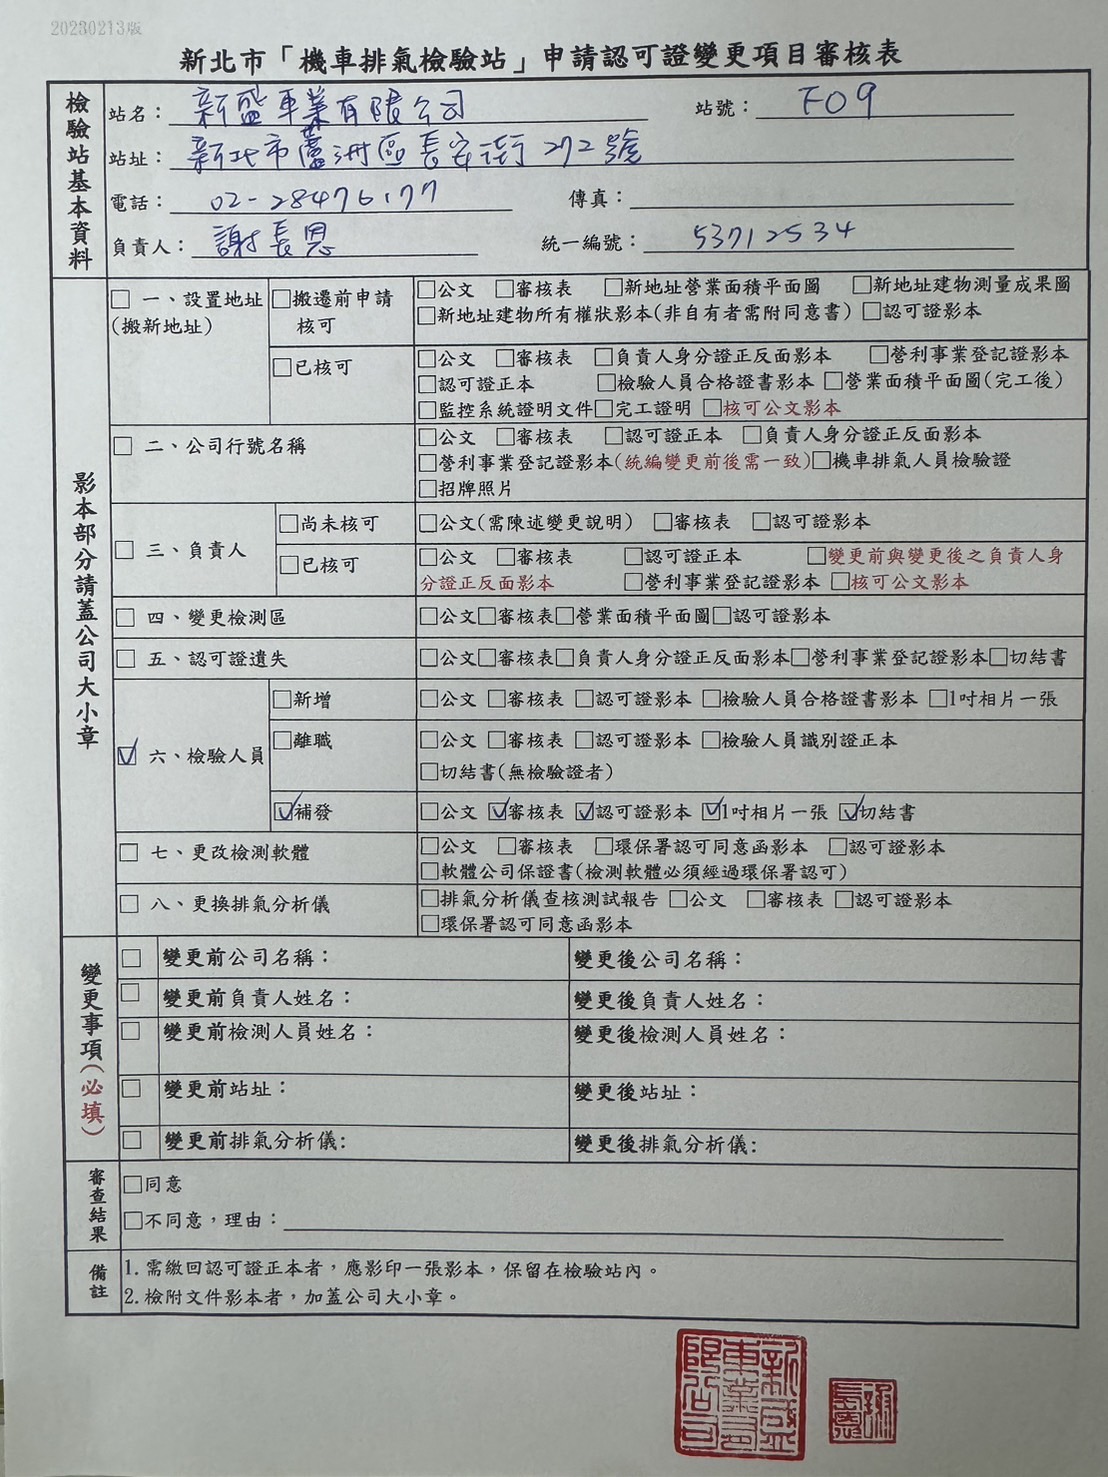 20230213版
新北市「機車排氣檢驗站」申請認可證變更項目審核表
檢驗站基本資料
站名：新盛車業有限公司 站號：F09
站址：新北市蘆洲區長安街272號
電話：02-28476177 傳真：
負責人：謝長恩 統一編號：53712534
影本部分請蓋公司大小章
□ 一、設置地址(搬新地址)
□搬遷前申請核可
□公文 □審核表 □新地址營業面積平面圖 □新地址建物測量成果圖
□新地址建物所有權狀影本(非自有者需附同意書) □認可證影本
□已核可
□公文 □審核表 □負責人身分證正反面影本 □營利事業登記證影本
□認可證正本 □檢驗人員合格證書影本 □營業面積平面圖(完工後)
□監控系統證明文件□完工證明 □核可公文影本
□ 二、公司行號名稱
□公文 □審核表 □認可證正本 □負責人身分證正反面影本
□營利事業登記證影本(統編變更前後需一致)□機車排氣人員檢驗證
□招牌照片
□ 三、負責人
□尚未核可
□公文(需陳述變更說明) □審核表 □認可證影本
□已核可
□公文 □審核表 □認可證正本 □變更前與變更後之負責人身
分證正反面影本 □營利事業登記證影本 □核可公文影本
□ 四、變更檢測區
□公文□審核表□營業面積平面圖□認可證影本
□ 五、認可證遺失
□公文□審核表□負責人身分證正反面影本□營利事業登記證影本□切結書
☑ 六、檢驗人員
□新增
□公文 □審核表 □認可證影本 □檢驗人員合格證書影本 □1吋相片一張
□離職
□公文 □審核表 □認可證影本 □檢驗人員識別證正本
□切結書(無檢驗證者)
☑補發
□公文 ☑審核表 ☑認可證影本 ☑1吋相片一張 ☑切結書
□ 七、更改檢測軟體
□公文 □審核表 □環保署認可同意函影本 □認可證影本
□軟體公司保證書(檢測軟體必須經過環保署認可)
□ 八、更換排氣分析儀
□排氣分析儀查核測試報告 □公文 □審核表 □認可證影本
□環保署認可同意函影本
變更事項(必填)
□ 變更前公司名稱： 變更後公司名稱：
□ 變更前負責人姓名： 變更後負責人姓名：
□ 變更前檢測人員姓名： 變更後檢測人員姓名：
□ 變更前站址： 變更後站址：
□ 變更前排氣分析儀: 變更後排氣分析儀:
審查結果
□同意
□不同意，理由：
備註
1.需繳回認可證正本者，應影印一張影本，保留在檢驗站內。
2.檢附文件影本者，加蓋公司大小章。
新盛車業有限公司
謝長恩